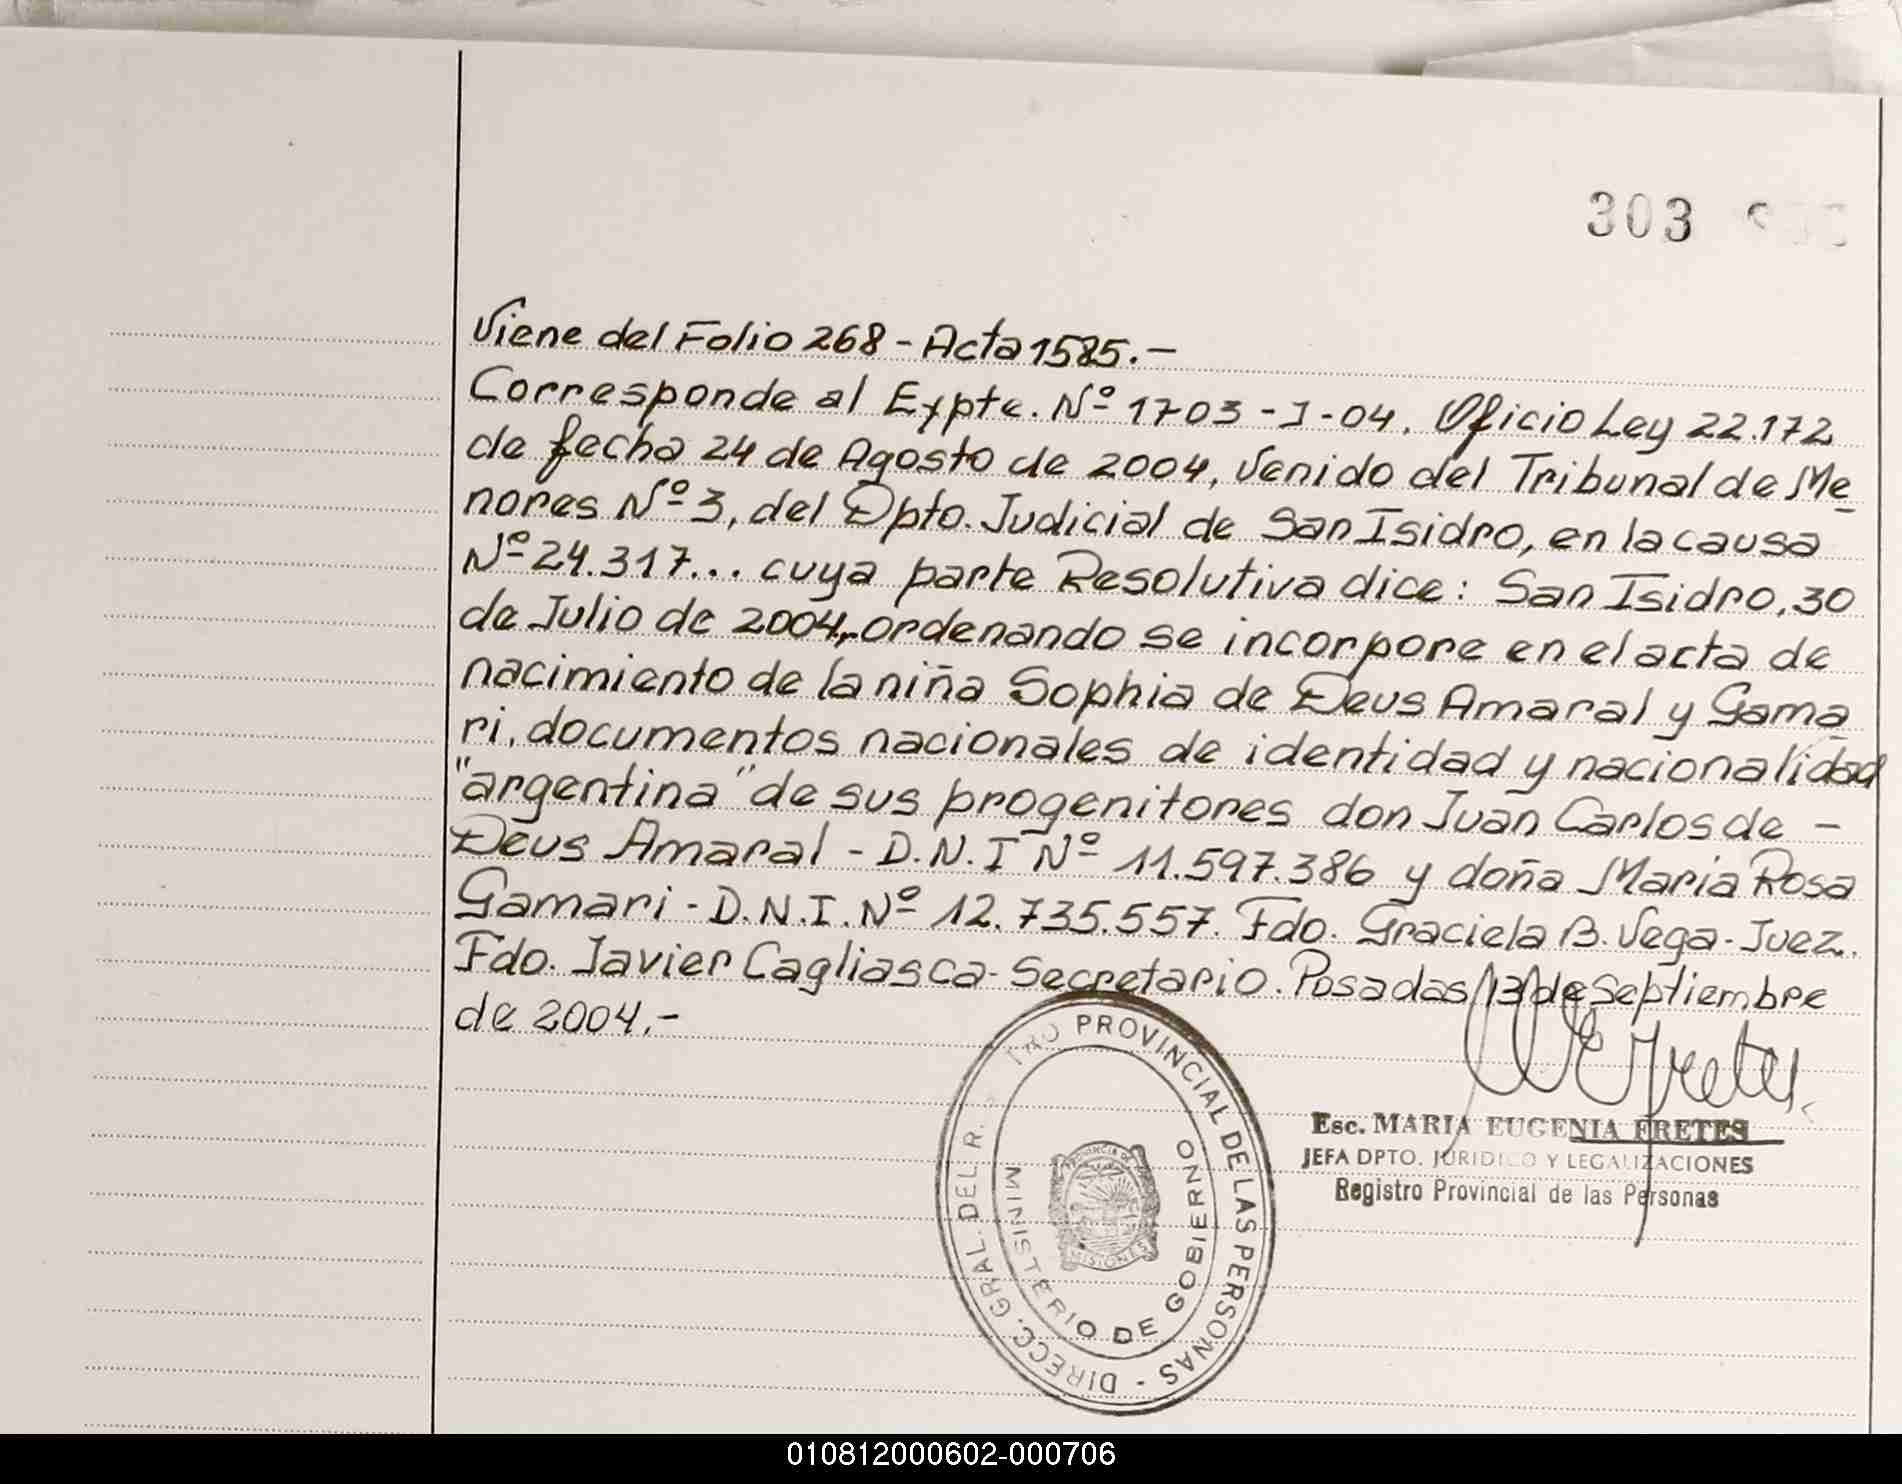 303
Viene del Folio 268 - Acta 1585.-
Corresponde al Expte. Nº 1703-J-04. Oficio Ley 22.172
de fecha 24 de Agosto de 2004, venido del Tribunal de Me
nores Nº 3, del Dpto. Judicial de San Isidro, en la causa
Nº 24.317... cuya parte Resolutiva dice: San Isidro, 30
de Julio de 2004,-ordenando se incorpore en el acta de
nacimiento de la niña Sophia de Deus Amaral y Gama
ri, documentos nacionales de identidad y nacionalidad
"argentina" de sus progenitores don Juan Carlos de -
Deus Amaral - D.N.I Nº 11.597.386 y doña Maria Rosa
Gamari - D.N.I. Nº 12.735.557. Fdo. Graciela B. Vega - Juez.
Fdo. Javier Cagliasca - Secretario. Posadas, 13 de Septiembre
de 2004.-
MEFretes
Esc. MARIA EUGENIA FRETES
JEFA DPTO. JURIDICO Y LEGALIZACIONES
Registro Provincial de las Personas
DIRECC. GRAL. DEL R. TRO PROVINCIAL DE LAS PERSONAS -
MINISTERIO DE GOBIERNO
PROVINCIA DE
MISIONES
010812000602-000706